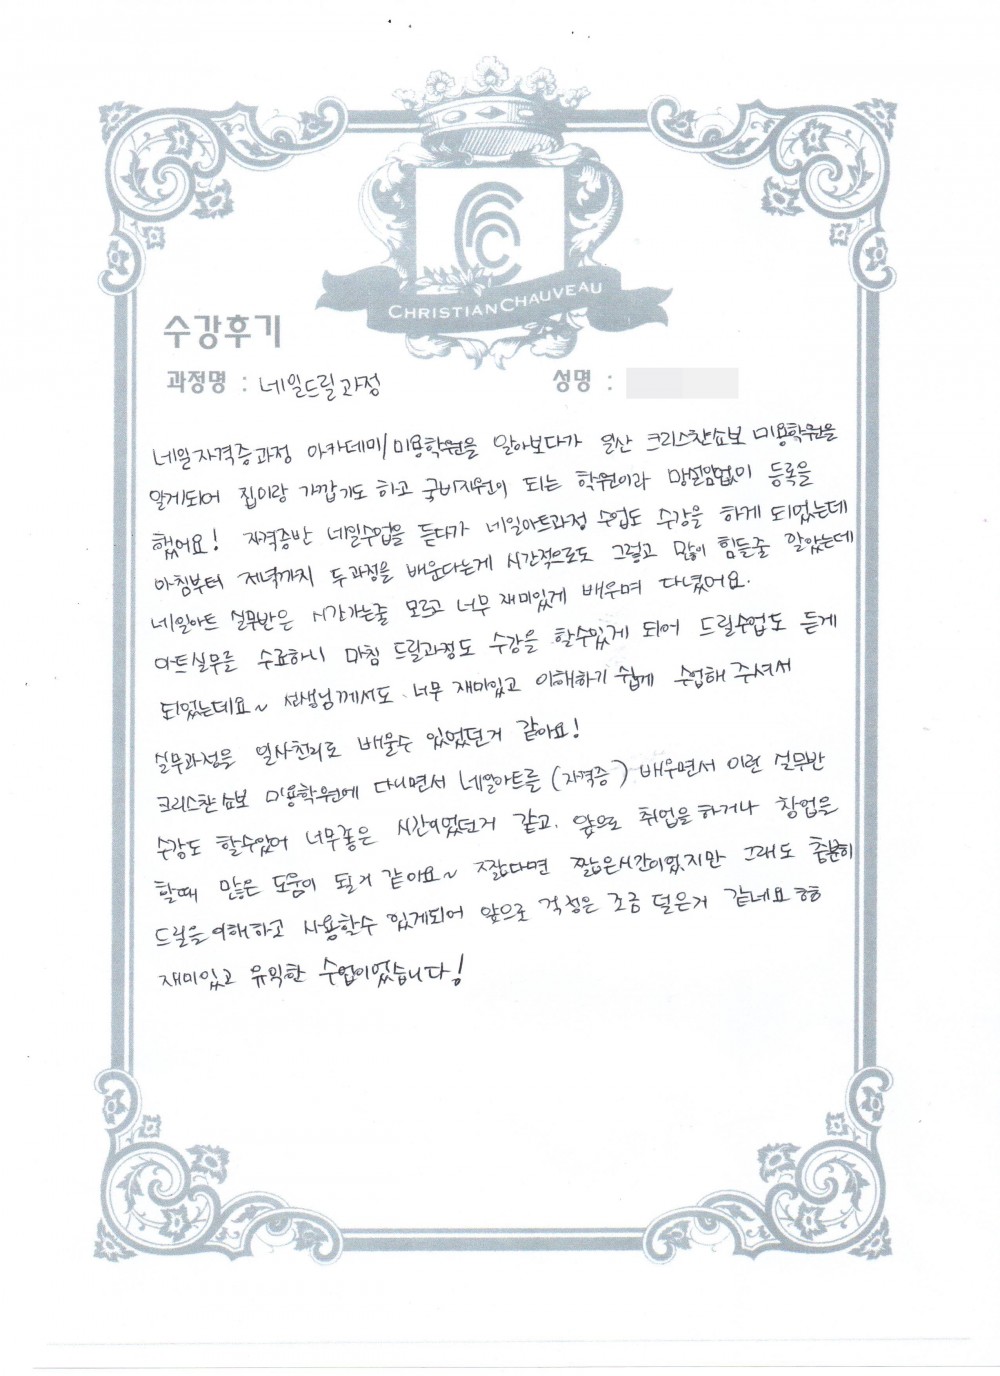 CHRISTIAN CHAUVEAU
수강후기
과정명 : 네일드릴과정
성명 :
네일자격증과정 아카데미/미용학원을 알아보다가 일산 크리스챤쇼보 미용학원을
알게되어 집이랑 가깝기도 하고 국비지원이 되는 학원이라 망설임없이 등록을
했어요! 자격증반 네일수업을 듣다가 네일아트과정 수업도 수강을 하게 되었는데
아침부터 저녁까지 두과정을 배운다는게 시간적으로도 그렇고 많이 힘들줄 알았는데
네일아트 실무반은 시간가는줄 모르고 너무 재미있게 배우며 다녔어요.
아트실무를 수료하니 마침 드릴과정도 수강을 할수있게 되어 드릴수업도 듣게
되었는데요~ 선생님께서도 너무 재미있고 이해하기 쉽게 수업해 주셔서
실무과정을 일사천리로 배울수 있었던거 같아요!
크리스챤 쇼보 미용학원에 다니면서 네일아트를 (자격증) 배우면서 이런 실무반
수강도 할수있어 너무좋은 시간이었던거 같고, 앞으로 취업을 하거나 창업을
할때 많은 도움이 될거 같아요~ 짧다면 짧은시간이었지만 그래도 충분히
드릴을 이해하고 사용할수 있게되어 앞으로 걱정은 조금 덜은거 같네요 ㅎㅎ
재미있고 유익한 수업이었습니다!